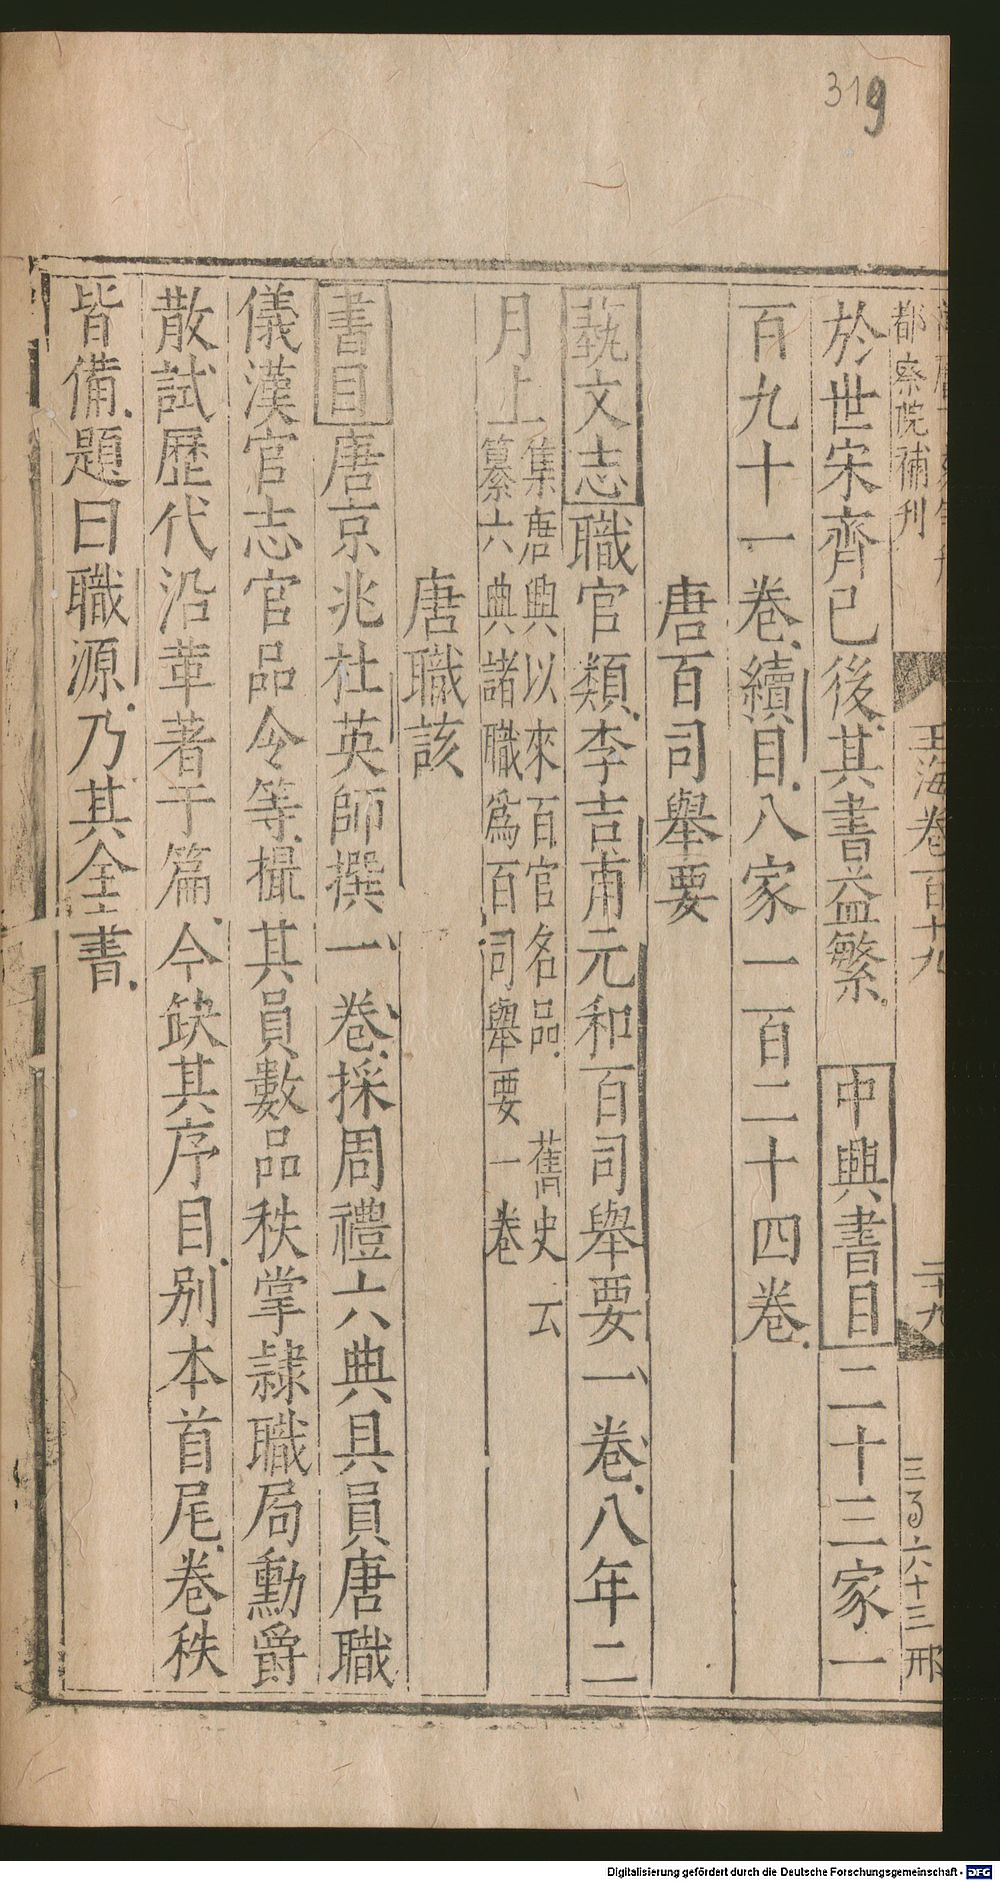 319
都察院補刊
玉海卷百十九
二十九
三百六十三 邢
於世宋齊已後其書益繁 中興書目二十三家一
百九十一卷續目八家一百二十四卷
唐百司舉要
藝文志職官類李吉甫元和百司舉要一卷八年二
月上集唐興以來百官名品 舊史云
纂六典諸職為百司舉要一卷
唐職該
書目唐京兆杜英師撰一卷採周禮六典具員唐職
儀漢官志官品令等撮其員數品秩掌隷職局勳爵
散試歷代沿革著于篇今缺其序目別本首尾卷秩
皆備題曰職源乃其全書
Digitalisierung gefördert durch die Deutsche Forschungsgemeinschaft - DFG